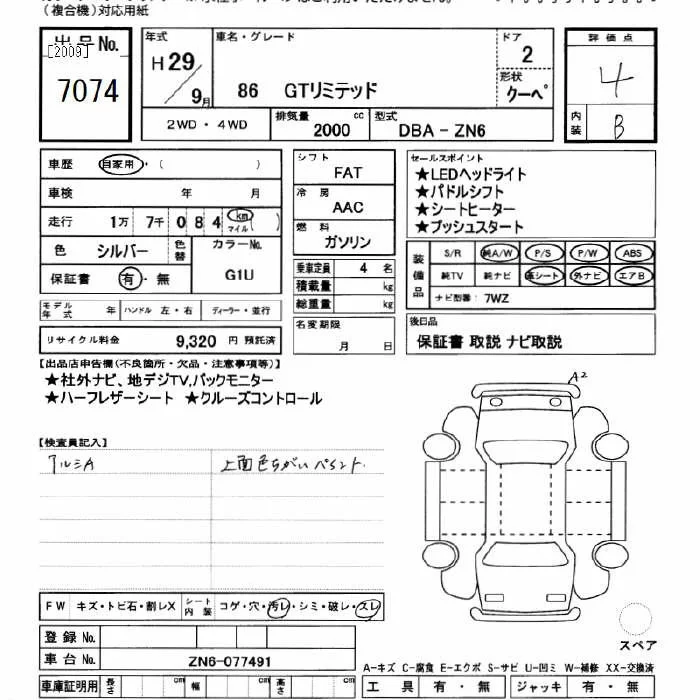 (複合機)対応用紙
出品No.
[2009]
7074
年式
H29
9月
車名・グレード
86 GTリミテッド
ドア
2
形状
クーペ
評価点
4
内装
B
2WD・4WD
排気量
2000 cc
型式
DBA-ZN6
車歴 自家用・( )
車検 年 月
走行 1万 7千 084 km マイル( )
色 シルバー 色替 カラーNo.
G1U
保証書 有・無
モデル年式 年 ハンドル 左・右 ディーラー・並行
リサイクル料金 9,320 円 預託済
シフト
FAT
冷房
AAC
燃料
ガソリン
乗車定員 4 名
積載量 kg
総重量 kg
名変期限
月 日
セールスポイント
★LEDヘッドライト
★パドルシフト
★シートヒーター
★プッシュスタート
装備品
S/R 純A/W P/S P/W ABS
純TV 純ナビ 革シート 外ナビ エアB
ナビ型番: 7WZ
後日品
保証書 取説 ナビ取説
【出品店申告欄(不良箇所・欠品・注意事項等)】
★社外ナビ、地デジTV,バックモニター
★ハーフレザーシート ★クルーズコントロール
【検査員記入】
アルミA
上面色ちがいペイント.
A2
FW キズ・トビ石・割レX シート内装 コゲ・穴・汚レ・シミ・破レ・スレ
登録No.
車台No. ZN6-077491
車庫証明用 長さ cm 幅 cm 高さ cm
スペア
A-キズ C-腐食 E-エクボ S-サビ U-凹ミ W-補修 XX-交換済
工具 有・無 ジャッキ 有・無